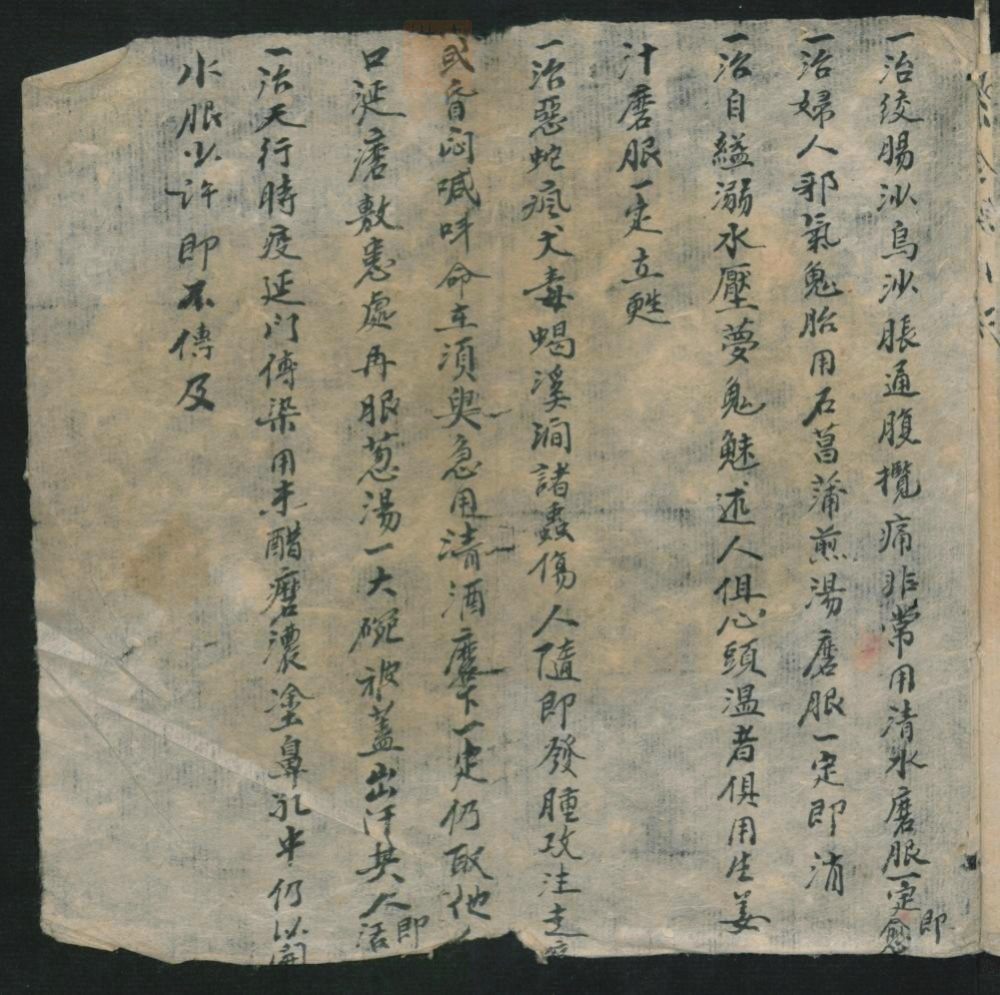 一治絞腸沙烏沙脹通腹攪痛非常用清水磨服一定即愈
一治婦人邪氣鬼胎用石菖蒲煎湯磨服一定即消
一治自縊溺水壓夢鬼魅迷人但心頭溫者俱用生姜
汁磨服一定立甦
一治惡蛇瘋犬毒蝎溪澗諸蟲傷人隨即發腫攻注走
或昏悶喊叫命在須臾急用清酒磨下一定仍取他
口涎磨敷患處再服葱湯一大碗被蓋出汗其人即活
一治天行時疫延門傳染用末醋磨濃塗鼻孔中仍以
水服少許即不傳及